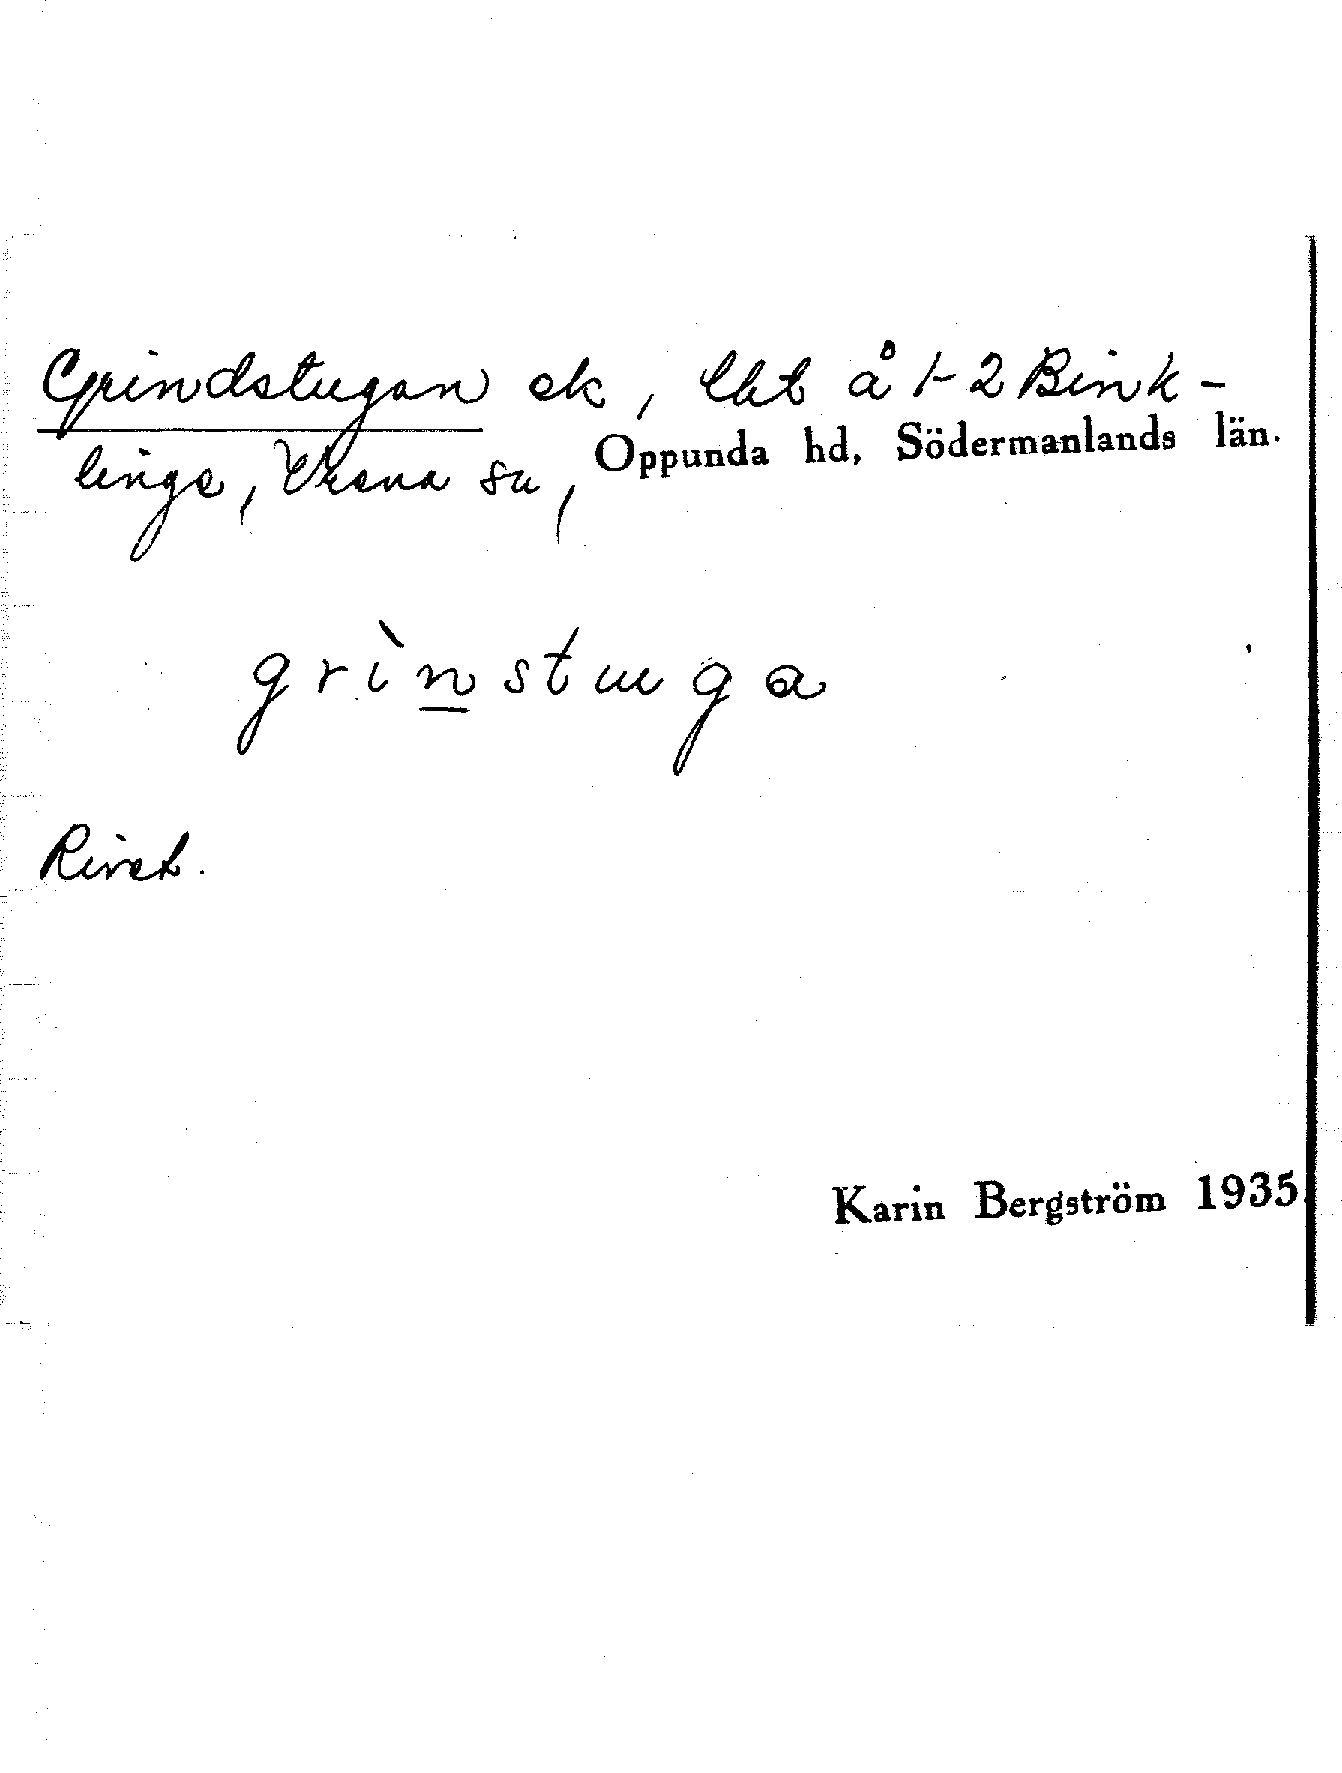 Grindstugan ek, lht å 1-2 Bink-
linge, Vrena sn, Oppunda hd, Södermanlands län.
grìnstuga
Rivet.
Karin Bergström 1935